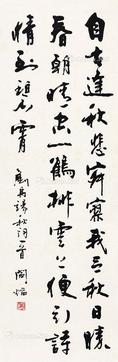 自古逢秋悲寂寞我言秋日胜
春朝晴空一鹤排云上便引诗
情到碧霄 刘禹锡秋词一首